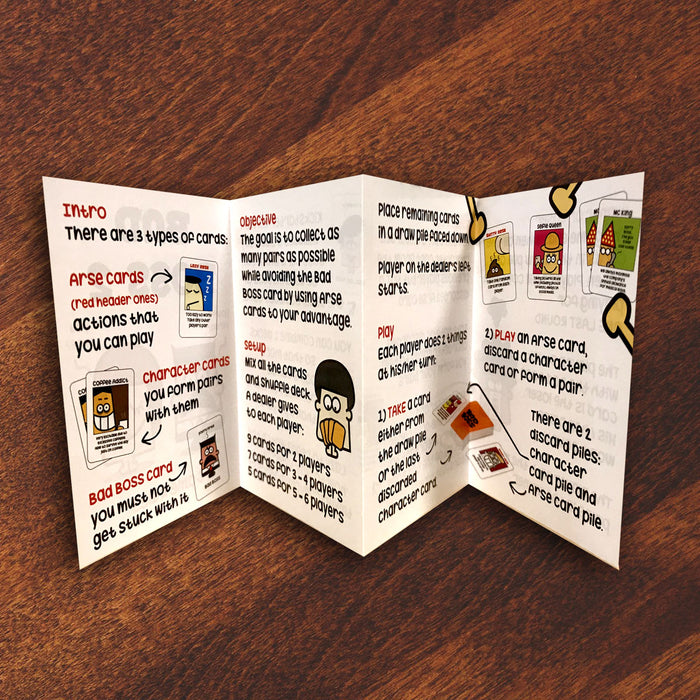 Intro
There are 3 types of cards:
Arse cards
(red header ones)
actions that
you can play
LAZY ARSE
Z
Z
Z
Character cards
you form pairs
with them
Coffee Addict
Bad Boss card
you must not
get stuck with it
BAD BOSS
Objective
The goal is to collect as
many pairs as possible
while avoiding the Bad
Boss card by using Arse
cards to your advantage.
Setup
Mix all the cards
and shuffle deck.
A dealer gives
to each player:
9 cards for 2 players
7 cards for 3 - 4 players
5 cards for 5 - 6 players
Place remaining cards
in a draw pile faced down.
Player on the dealer's left
starts.
Play
Each player does 2 things
at his/her turn:
1) TAKE a card
either from
the draw pile
or the last
discarded
character card.
SELFIE QUEEN
MC KING
2) PLAY an Arse card,
discard a character
card or form a pair.
There are 2
discard piles:
Character
card pile and
Arse card pile.